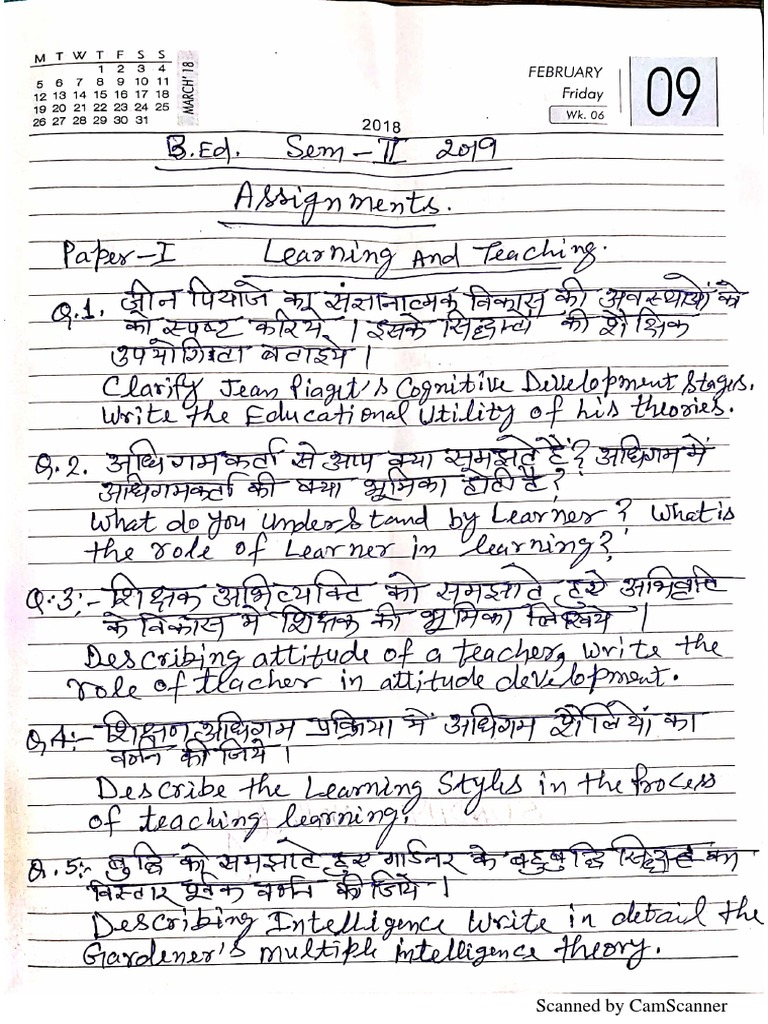 M T W T F S S
1 2 3 4
5 6 7 8 9 10 11
12 13 14 15 16 17 18
19 20 21 22 23 24 25
26 27 28 29 30 31
MARCH'18
FEBRUARY
Friday
Wk. 06
09
2018
B.Ed. Sem-II 2019
Assignments.
Paper-I Learning And Teaching.
Q.1. जीन पियाजे का संज्ञानात्मक विकास की अवस्थायों को
को स्पष्ट करिये । इसके सिद्धान्तों की शैक्षिक
उपयोगिता बताइये ।
Clarify Jean Piaget's Cognitive Development Stages.
Write the Educational Utility of his theories.
Q.2. अधिगमकर्ता से आप क्या समझते हैं? अधिगम में
अधिगमकर्ता की क्या भूमिका होती है?
What do you understand by Learner? What is
the role of Learner in learning?
Q.3:- शिक्षक अभिव्यक्ति को समझाते हुये अभिवृत्ति
के विकास में शिक्षक की भूमिका लिखिये ।
Describing attitude of a teacher, write the
role of teacher in attitude development.
Q.4:- शिक्षण अधिगम प्रक्रिया में अधिगम शैलियों का
वर्णन कीजिये ।
Describe the Learning Styles in the Process
of teaching learning.
Q.5:- बुद्धि को समझाते हुए गार्डनर के बहुबुद्धि सिद्धान्त का
विस्तार पूर्वक वर्णन कीजिये ।
Describing Intelligence Write in detail the
Gardener's multiple intelligence theory.
Scanned by CamScanner